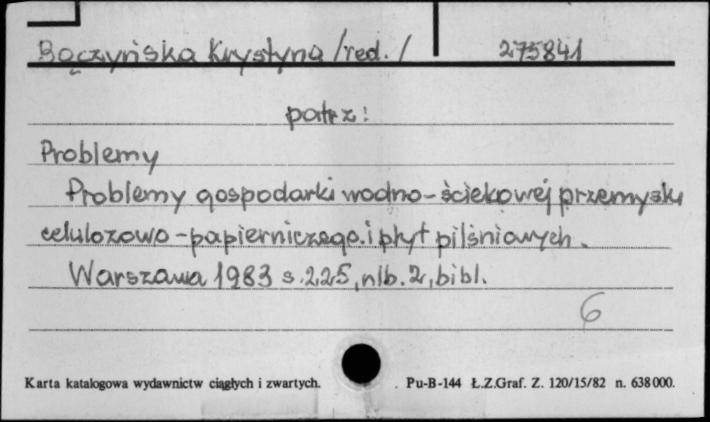 Bączyńska Krystyna /red./ 275841
patrz:
Problemy
Problemy gospodarki wodno-ściekowej przemysłu
celulozowo-papierniczego i płyt pilśniowych.
Warszawa 1983 s. 225, nlb. 2, bibl.
6
Karta katalogowa wydawnictw ciągłych i zwartych. Pu-B-144 Ł.Z.Graf. Z. 120/15/82 n. 638000.